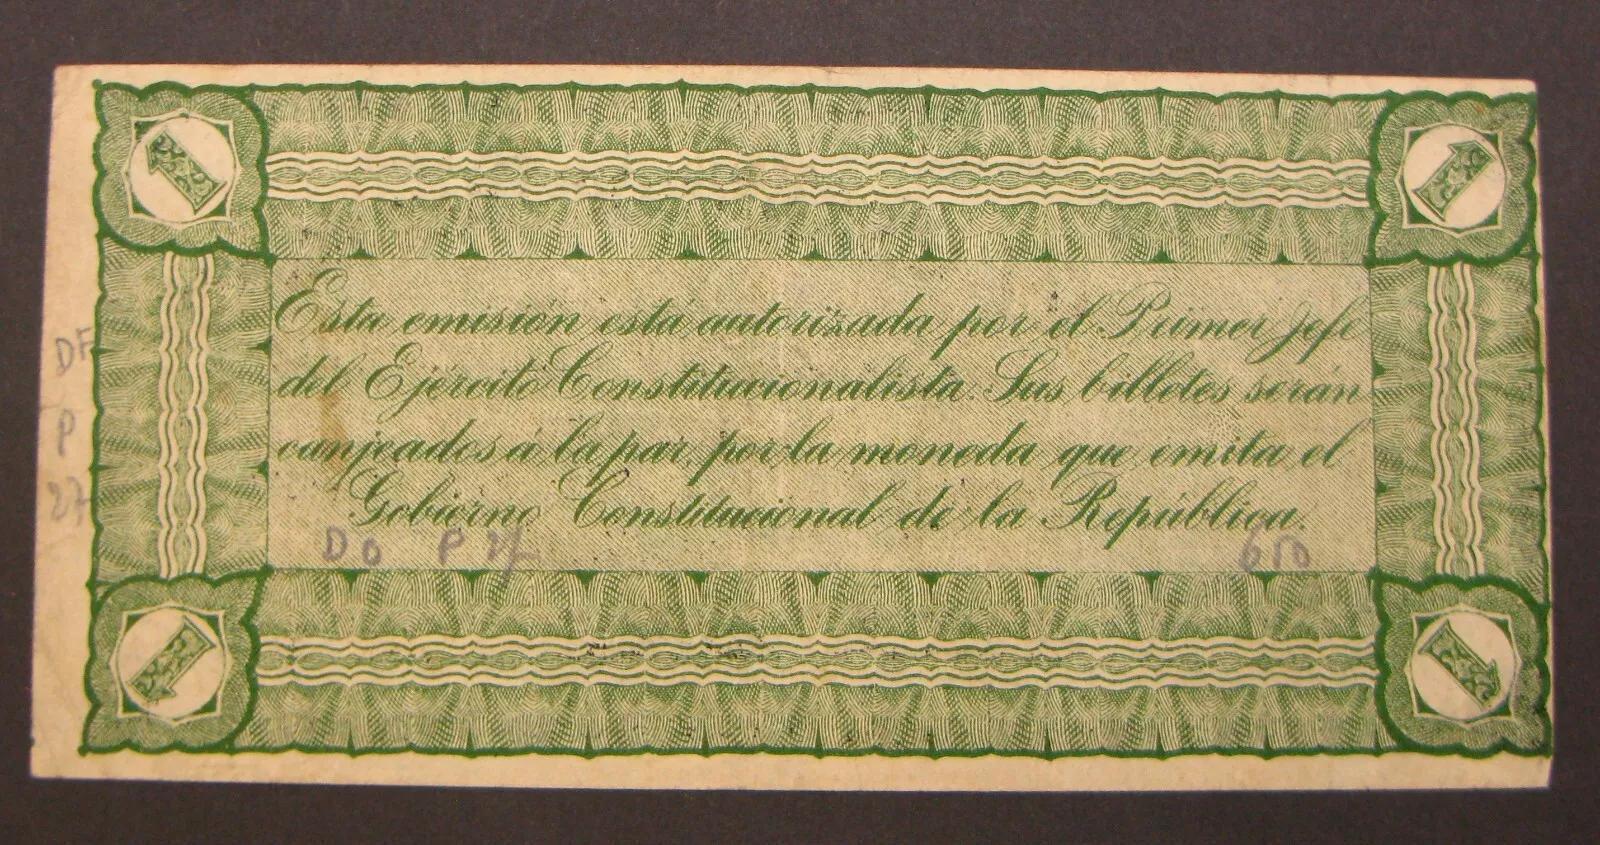 1 1
Esta emisión está autorizada por el Primer Jefe
del Ejército Constitucionalista. Sus billetes serán
canjeados á la par, por la moneda que emita el
Gobierno Constitucional de la República.
DF
P
27
DO P 27 650
1 1